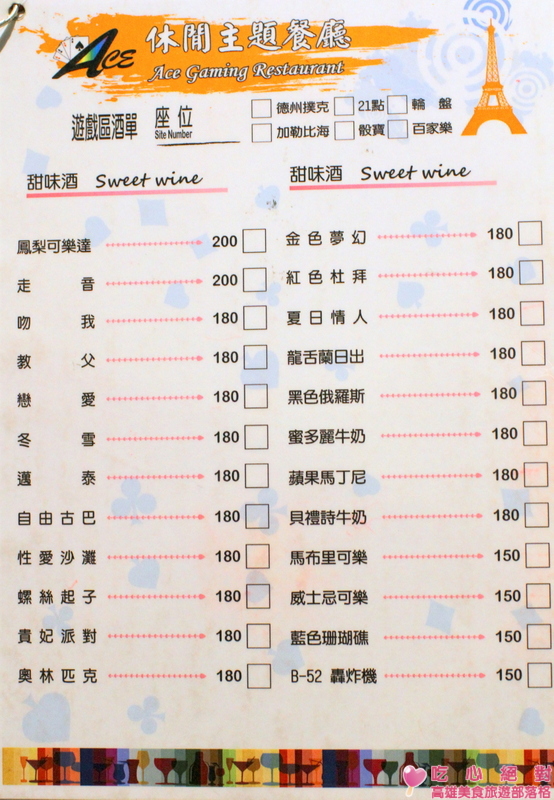 ACE 休閒主題餐廳
Ace Gaming Restaurant
遊戲區酒單 座位 Site Number
德州撲克 21點 輪盤
加勒比海 骰寶 百家樂
甜味酒 Sweet wine
鳳梨可樂達 200
走音 200
吻我 180
教父 180
戀愛 180
冬雪 180
邁泰 180
自由古巴 180
性愛沙灘 180
螺絲起子 180
貴妃派對 180
奧林匹克 180
甜味酒 Sweet wine
金色夢幻 180
紅色杜拜 180
夏日情人 180
龍舌蘭日出 180
黑色俄羅斯 180
蜜多麗牛奶 180
蘋果馬丁尼 180
貝禮詩牛奶 180
馬布里可樂 150
威士忌可樂 150
藍色珊瑚礁 150
B-52 轟炸機 150
吃心絕對
高雄美食旅遊部落格